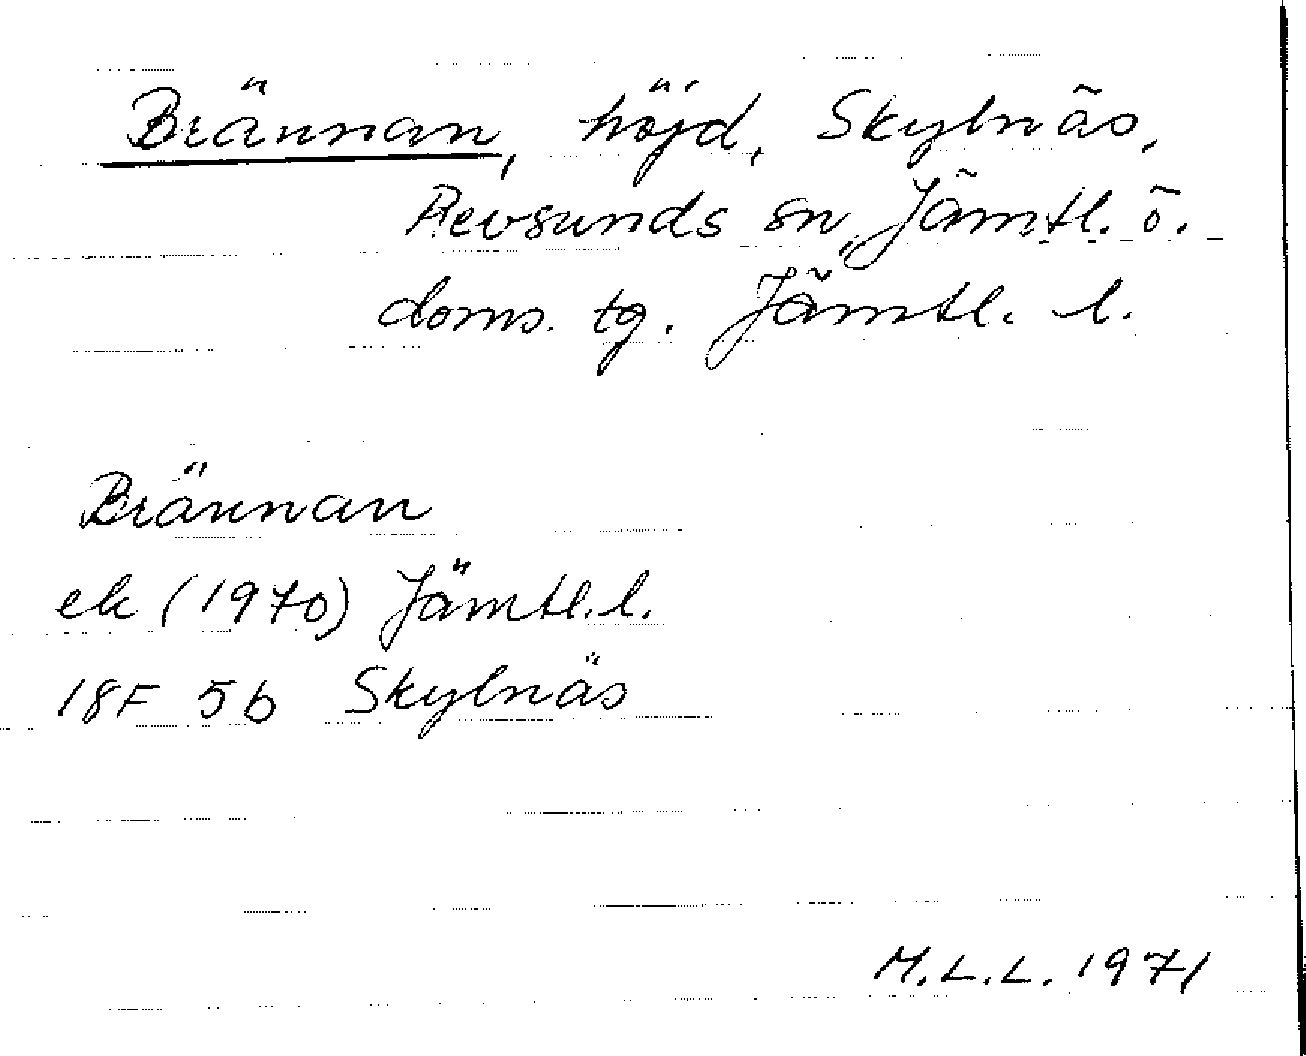 Brännan, höjd, Skylnäs,
Revsunds sn, Jämtl. ö.
doms. tg. Jämtl. l.
Brännan
ek (1970) Jämtl. l.
18F 5b Skylnäs
M.L.L. 1971